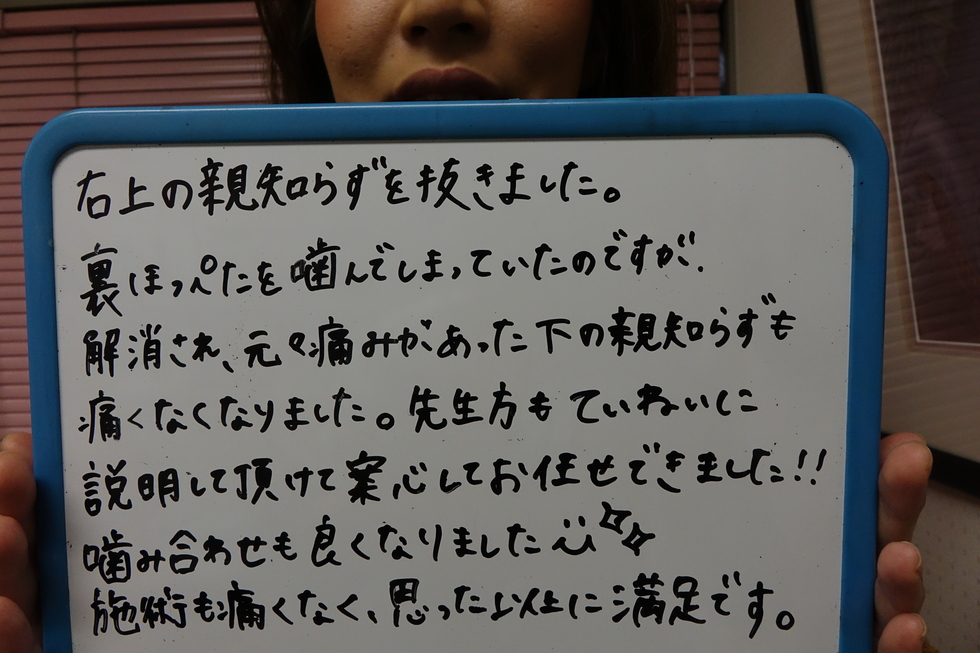 右上の親知らずを抜きました。
裏ほっぺたを噛んでしまっていたのですが、
解消され、元々痛みがあった下の親知らずも
痛くなくなりました。先生方もていねいに
説明して頂けて案心してお任せできました!!
噛み合わせも良くなりました
施術も痛くなく、思った以上に満足です。